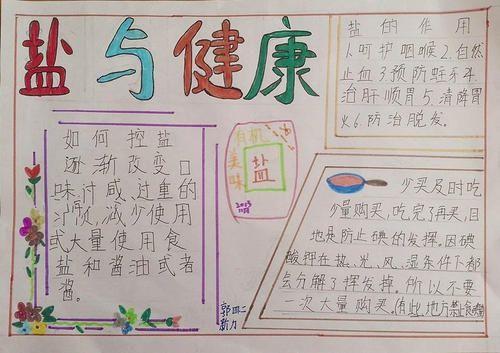 盐与健康
盐的作用
1.呵护咽喉2.自然
止血3预防蛀牙4
治肝顺胃5.清降胃
火6.防治脱发。
如何控盐
逐渐改变口
味,讨咸、过重的
习惯,减少使用
或大量使用食
盐和酱油或者
酱。
有机
美味
盐
2013
少买及时吃
少量购买,吃完了再买,目
地是防止碘的发挥。因碘
酸钾在热、光、风、湿条件下都
会分解了挥发掉。所以不要
一次大量购买。
郭
四二
新力